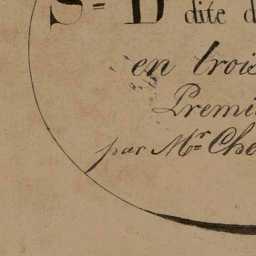 S= D dite d
en trois
Premi
par Mr. Che